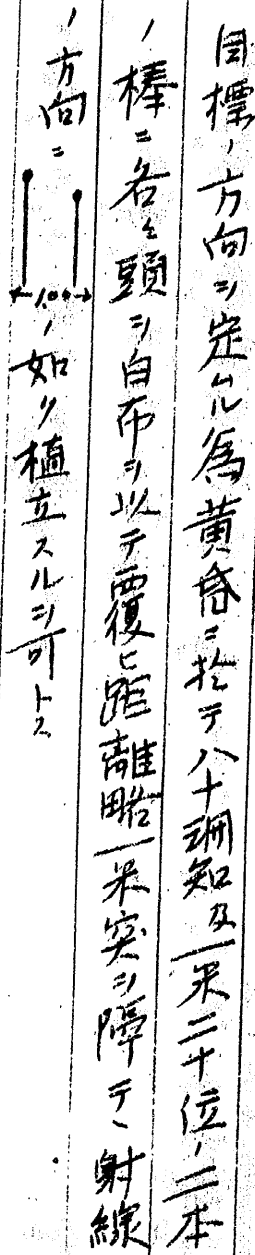 目標ノ方向ヲ定ムル為黄昏ニ於テ八十珊知及一米二十位ノ二本
ノ棒ニ各々頭ヲ白布ヲ以テ覆ヒ距離略一米突ヲ隔テ、射線
ノ方向ニ 1.00 ノ如ク植立スルヲ可トス